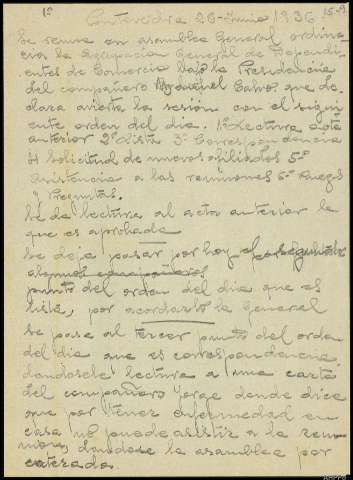 1º
Pontevedra 26-Junio 1936
Se reune en asamblea General ordina
ria la Agrupacion General de Dependi
entes de Comercio bajo la Presidencia
del compañero Calvo, que de
clara abierta la sesión con el sigui
ente orden del dia. 1º Lectura acta
anterior 2º Lista 3º Correspondencia
4º Solicitud de nuevos afiliados 5º
Asistencia a las reuniones 6º Ruegos
y Preguntas.
Se da lectura al acta anterior la
que es aprobada
Se deja pasar por hoy el segundo
punto del orden del dia que es
lista, por acordarlo la General
Se pasa al tercer punto del orden
del dia que es correspondencia,
dandosele lectura a una carta
del compañero Jorge donde dice
que por tener enfermedad en
casa no puede asistir a la reu
nion, dandose la asamblea por
enterada.